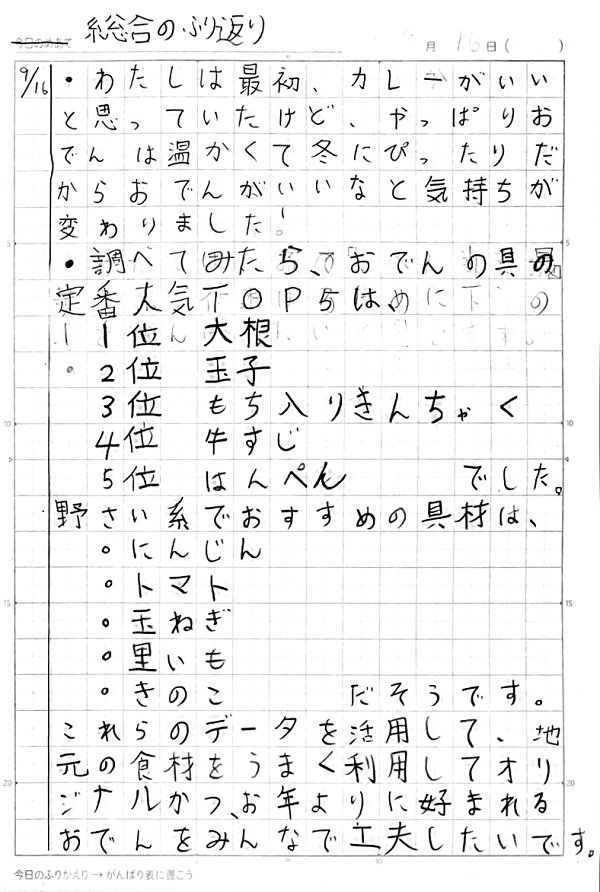 総合のふり返り
今日のめあて
月16日( )
9/16
・わたしは最初、カレーがいい
と思っていたけど、やっぱりお
でんは温かくて冬にぴったりだ
からおでんがいいなと気持ちが
変わりました!。
・調べてみたら、おでんの具の
定番人気TOP5は、
1位 大根
2位 玉子
3位 もち入りきんちゃく
4位 牛すじ
5位 はんぺん でした。
野さい系でおすすめの具材は、
・にんじん
・トマト
・玉ねぎ
・里いも
・きのこ だそうです。
これらのデータを活用して、地
元の食材をうまく利用してオリ
ジナルかつ、お年よりに好まれる
おでんをみんなで工夫したいです。
今日のふりかえり→がんばり表に書こう